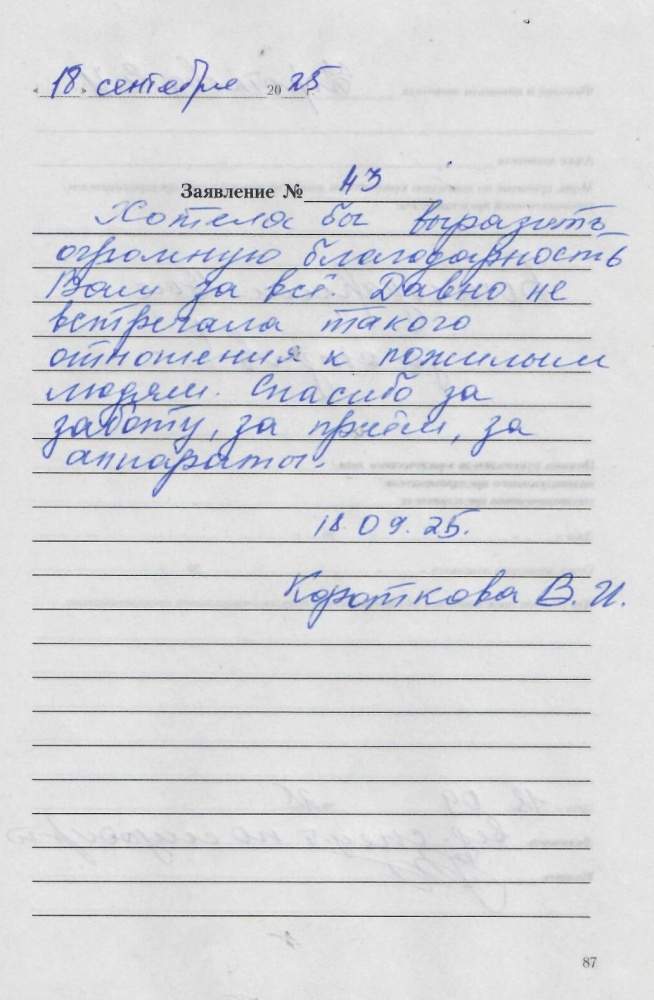 "18" сентября 2025 г.
Заявление № 43
Хотела бы выразить
огромную благодарность
Вам за всё. Давно не
встречала такого
отношения к пожилым
людям. Спасибо за
заботу, за приём, за
аппараты.
18.09.25.
Короткова В. И.
87